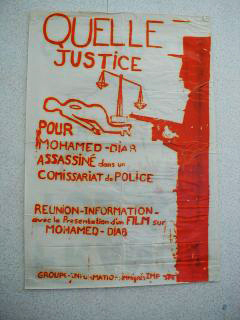 QUELLE
JUSTICE
POUR
MOHAMED-DIAB
ASSASSINÉ dans un
COMISSARIAT de POLICE
REUNION-INFORMATION-
avec la Presentation d'un FILM sur
MOHAMED-DIAB
GROUPE-INFORMATION-immigrés IMP